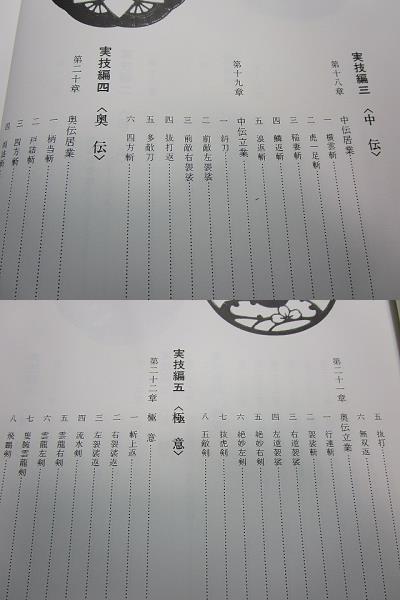 実技編三〈中伝〉
第十八章 中伝居業
一 横雲斬
二 虎一足斬
三 稲妻斬
四 鱗返斬
五 浪返斬
第十九章 中伝立業
一 納刀
二 前敵左袈裟
三 前敵右袈裟
四 抜打返
五 多敵刀
六 四方斬
実技編四〈奥伝〉
第二十章 奥伝居業
一 柄当斬
二 戸詰斬
三 四方斬
四
五 抜打
六 無双返
第二十一章 奥伝立業
一 行連斬
二 袈裟斬
三 右連袈裟
四 左連袈裟
五 絶妙右剣
六 絶妙左剣
七 抜虎剣
八 五敵剣
実技編五〈極意〉
第二十二章 極意
一 斬上返
二 右袈裟返
三 左袈裟返
四 流水剣
五 雲龍右剣
六 雲龍左剣
七 雲龍剣
八 飛鷂剣